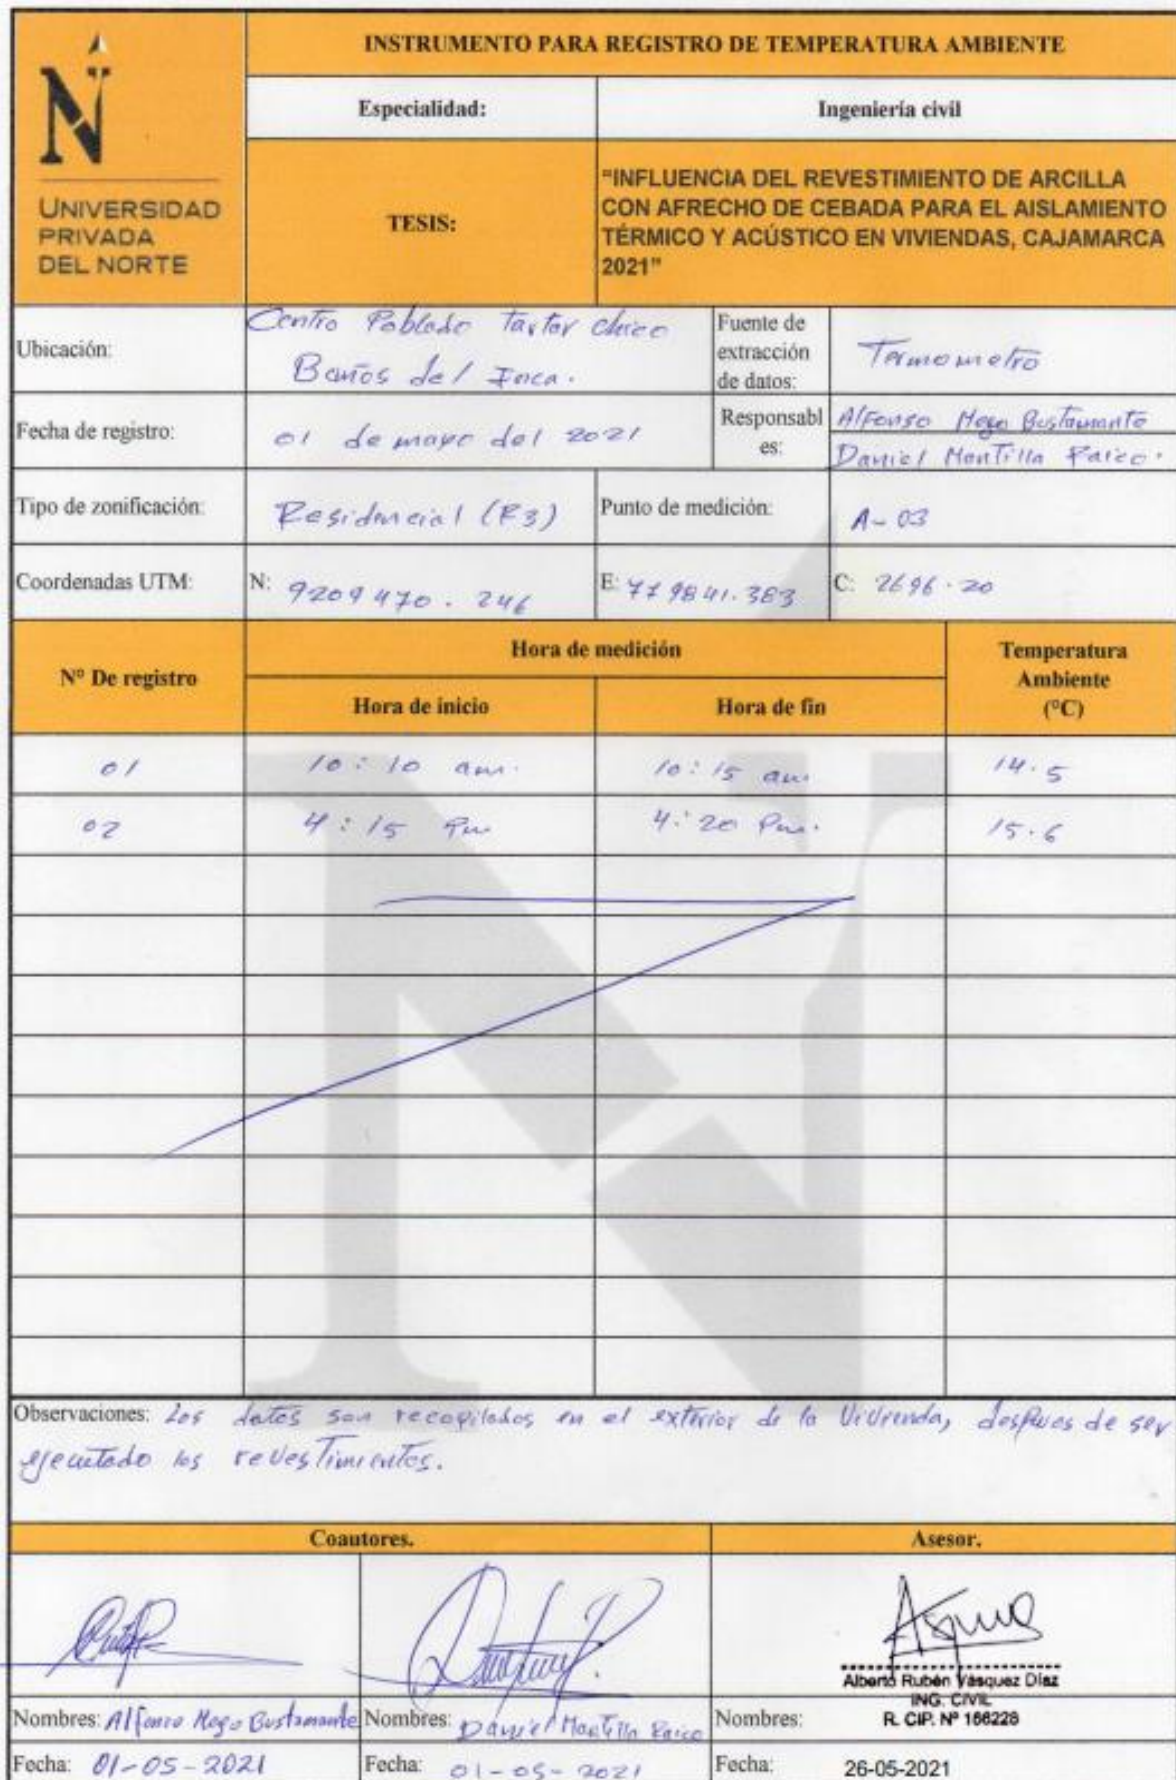 INSTRUMENTO PARA REGISTRO DE TEMPERATURA AMBIENTE
N
UNIVERSIDAD
PRIVADA
DEL NORTE
Especialidad: Ingeniería civil
TESIS:
"INFLUENCIA DEL REVESTIMIENTO DE ARCILLA
CON AFRECHO DE CEBADA PARA EL AISLAMIENTO
TÉRMICO Y ACÚSTICO EN VIVIENDAS, CAJAMARCA
2021"
Ubicación: Centro Poblado Tartar Chico
Baños del Inca.
Fuente de
extracción
de datos:
Termometro
Fecha de registro: 01 de mayo del 2021
Responsabl
es:
Alfonso Mego Bustamante
Daniel Montilla Raico.
Tipo de zonificación: Residencial (R3) Punto de medición: A-03
Coordenadas UTM: N: 9209470.246 E: 779841.383 C: 2696.20
N° De registro
Hora de medición
Hora de inicio Hora de fin
Temperatura
Ambiente
(°C)
01 10:10 am. 10:15 am 14.5
02 4:15 Pm 4:20 Pm. 15.6
Observaciones: Los datos son recopilados en el exterior de la Vivienda, despues de ser
ejecutado los revestimientos.
Coautores. Asesor.
Alberto Rubén Vásquez Díaz
ING. CIVIL
R. CIP. N° 166228
Nombres: Alfonso Mego Bustamante Nombres: Daniel Montilla Raico Nombres:
Fecha: 01-05-2021 Fecha: 01-05-2021 Fecha: 26-05-2021